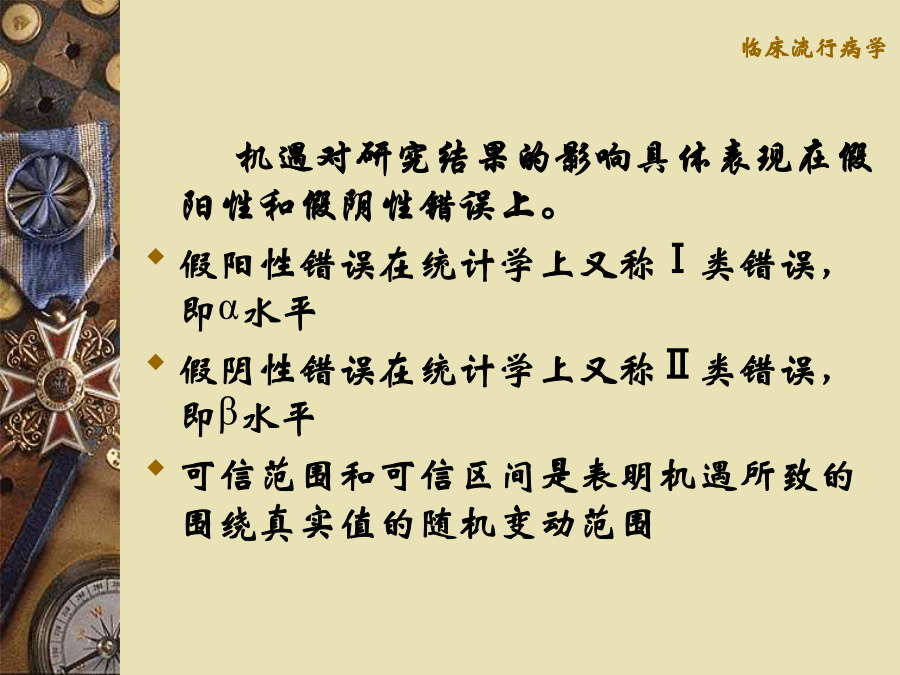 临床流行病学
机遇对研究结果的影响具体表现在假
阳性和假阴性错误上。
假阳性错误在统计学上又称Ⅰ类错误，
即α水平
假阴性错误在统计学上又称Ⅱ类错误，
即β水平
可信范围和可信区间是表明机遇所致的
围绕真实值的随机变动范围